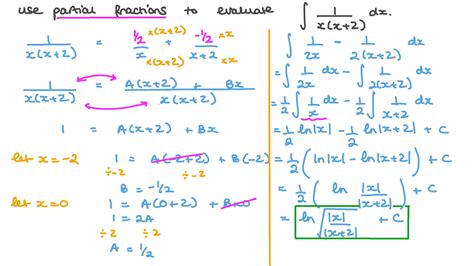 use partial fractions to evaluate ∫ 1/x(x+2) dx.
1/x(x+2) = ½/x ×(x+2)/×(x+2) + -½/x+2 ×x/×x
1/x(x+2) = A(x+2) + Bx/x(x+2)
1 = A(x+2) + Bx
let x=-2 1 = A(-2+2) + B(-2)
÷-2 ÷-2
B = -1/2
let x=0 1 = A(0+2) + B×0
1 = 2A
÷2 ÷2
A = 1/2
∫ 1/2x - 1/2(x+2) dx
= ∫ 1/2x dx - ∫ 1/2(x+2) dx
= ½ ∫ 1/x dx - ½ ∫ 1/x+2 dx
= ½ ln|x| - ½ ln|x+2| + C
= ½ (ln|x| - ln|x+2|) + C
= ½ ( ln |x|/|x+2| ) + C
= ln √|x|/|x+2| + C